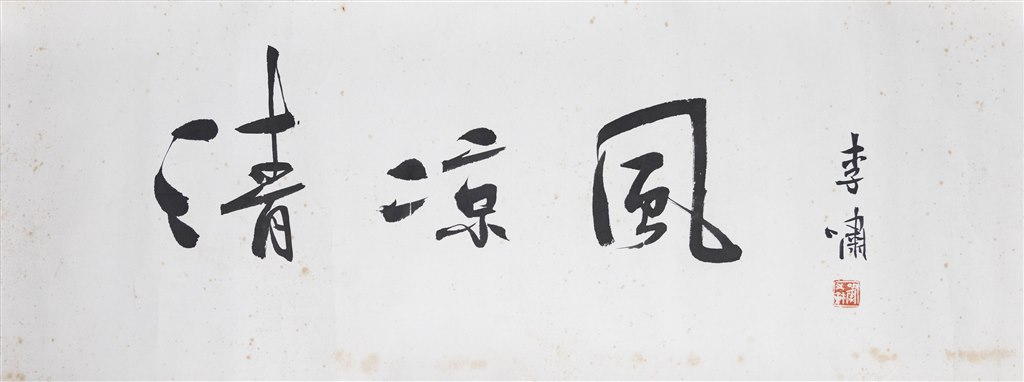 清凉風
李嘯